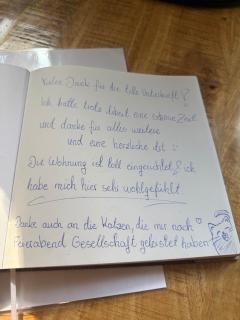 Vielen Dank für die tolle Unterkunft!
Ich hatte trotz Arbeit eine schöne Zeit
und danke für alles weitere
und eine herzliche Art :)
Die Wohnung ist toll eingerichtet & ich
habe mich hier sehr wohlgefühlt
Danke auch an die Katzen, die mir nach
Feierabend Gesellschaft geleistet haben